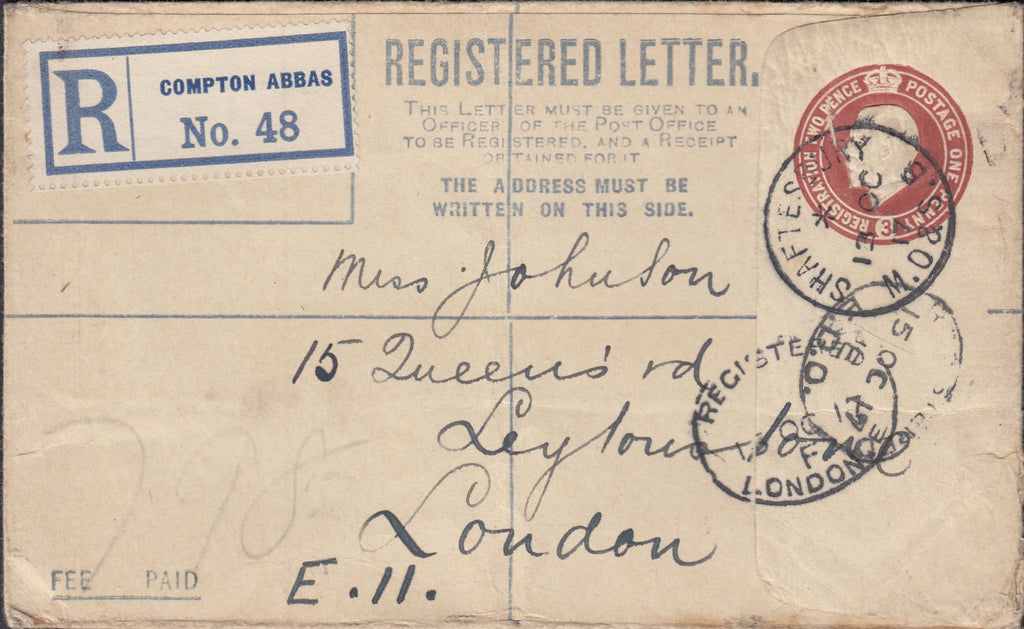 R
COMPTON ABBAS
No. 48
REGISTERED LETTER.
THIS LETTER MUST BE GIVEN TO AN
OFFICER OF THE POST OFFICE
TO BE REGISTERED, AND A RECEIPT
OBTAINED FOR IT
THE ADDRESS MUST BE
WRITTEN ON THIS SIDE.
REGISTRATION TWO PENCE POSTAGE ONE PENNY
3
SHAFTESBURY
B.S.O.
13 OC
Miss Johnson
15 Queen's rd
Leytonstone
London
E.11.
REGISTERED
LONDON
15 OC
FEE PAID